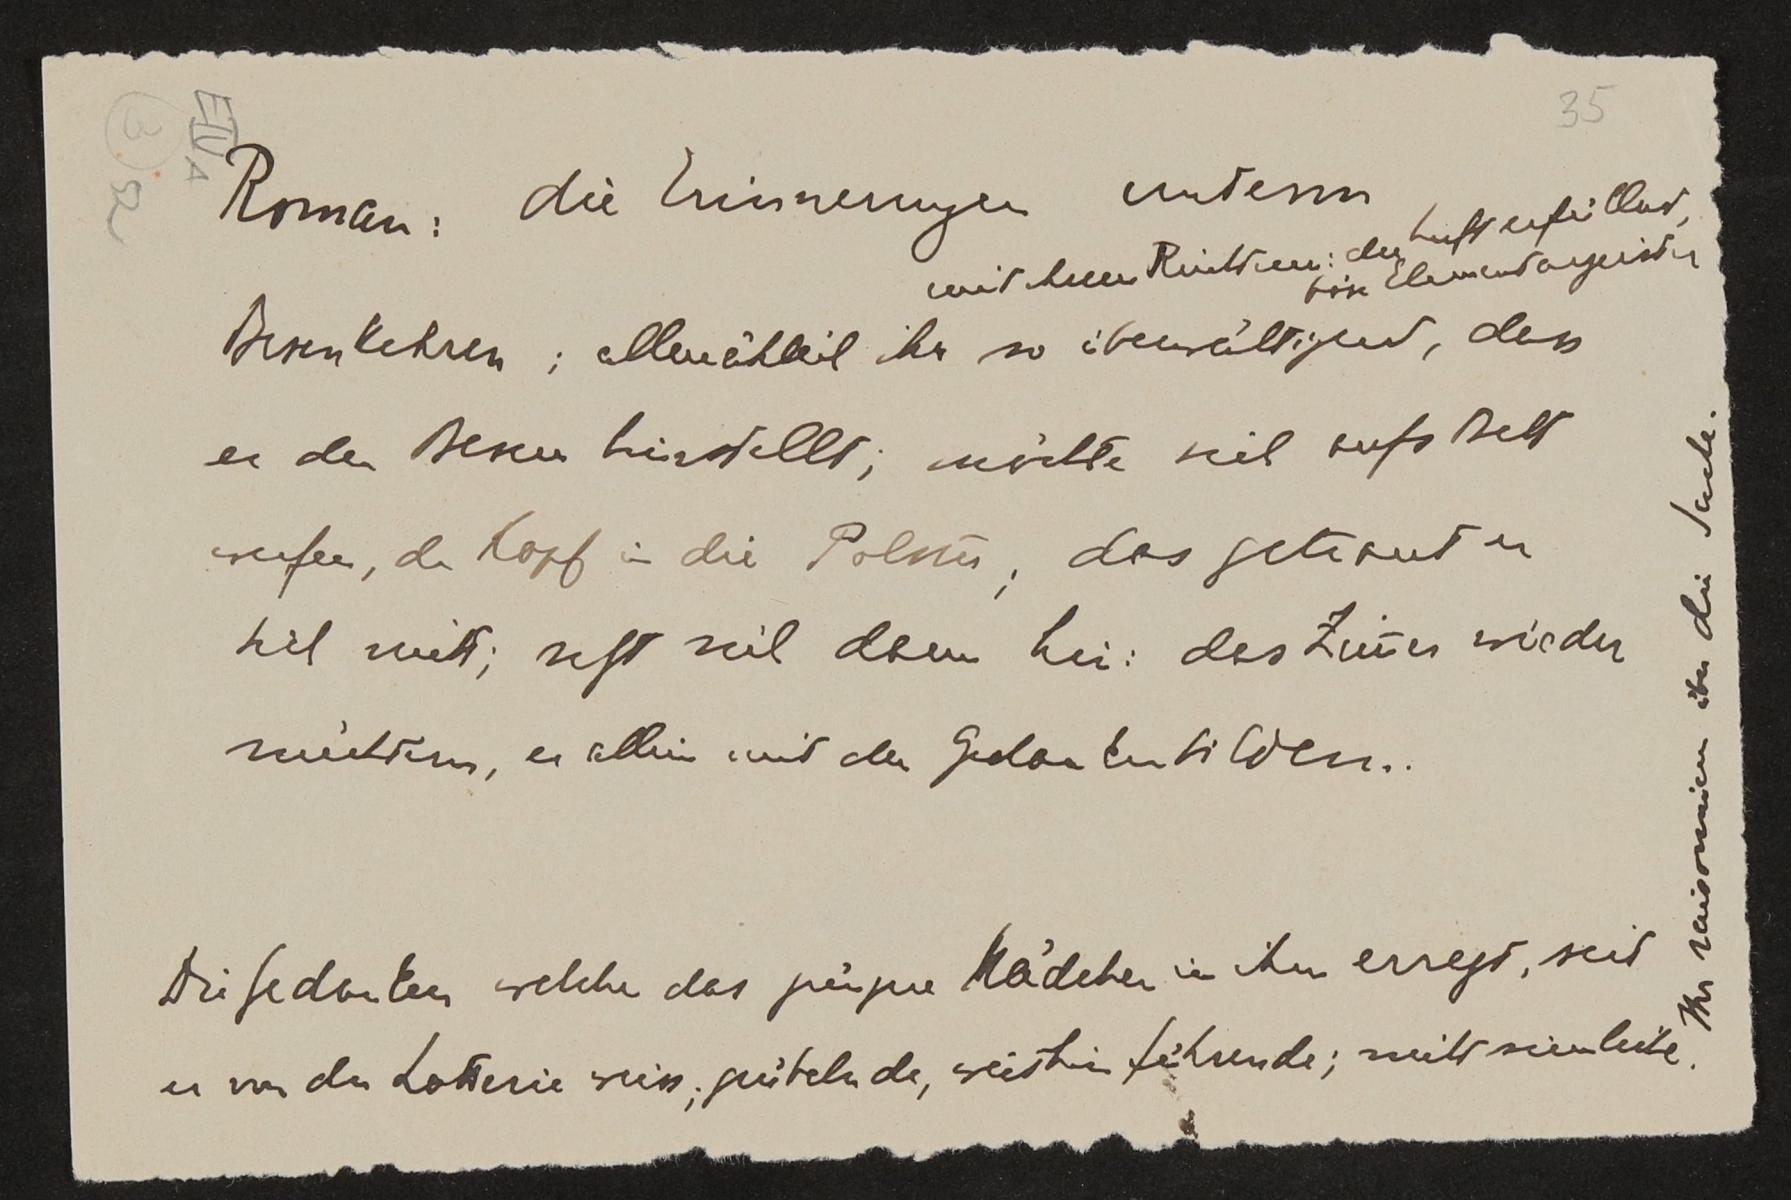 35
Roman: die Erinnerungen unterm
mit ihren Reizen: die Luft erfüllend,
wie Elementargeister
Besenkehren; allmählich ihr so überwältigend, dass
er den Besen hinstellt; möchte sich aufs Bett
werfen, den Kopf in die Polster; das getraut er
sich nicht; setzt sich dann hin: das Zimmer wieder
nüchtern, er allein mit den Gedankenbildern..
Die Gedanken welche das junge Mädchen in ihm erregt, seit
er von der Lotterie weiss; grübelnde, weithin führende; nicht sinnliche.
Ihr raisonnieren über die Sache.